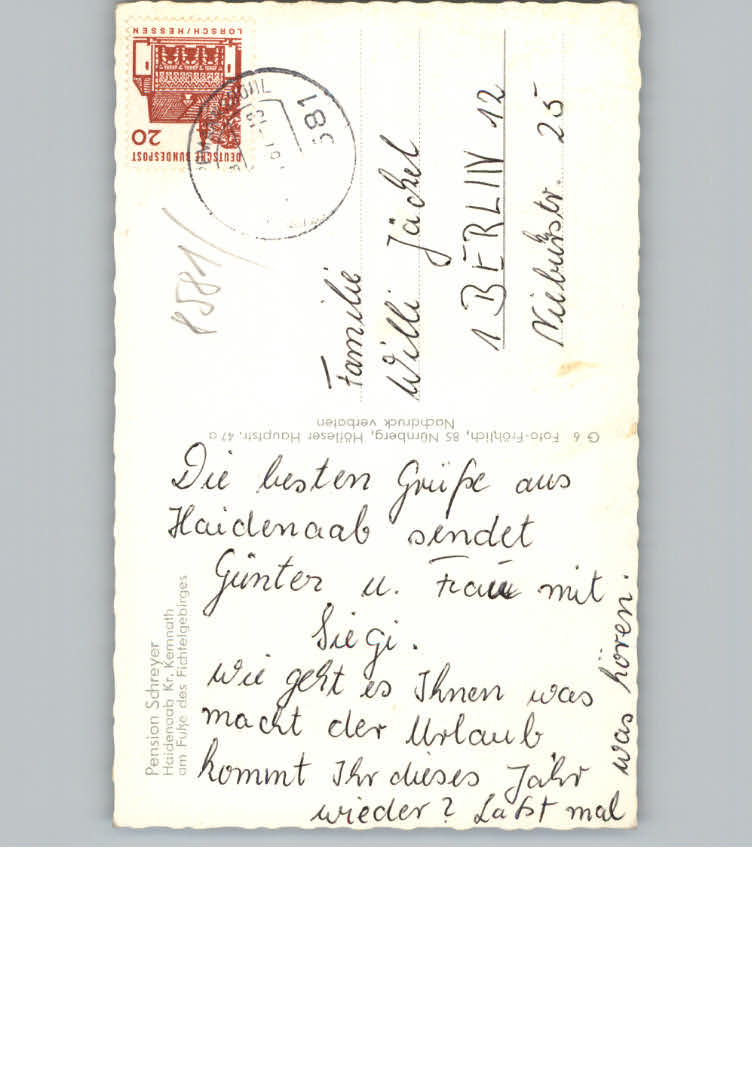 DEUTSCHE BUNDESPOST
20
LORSCH/HESSEN
581
8581
Familie
Willi Jäckel
1 BERLIN 12
Niebuhrstr. 25
G 6 Foto-Fröhlich, 85 Nürnberg, Höfleser Hauptstr. 47a
Nachdruck verboten
Pension Schreyer
Haidenaab Kr. Kemnath
am Fuße des Fichtelgebirges
Die besten Grüße aus
Haidenaab sendet
Günter u. Frau mit
Siegi.
Wie geht es Ihnen was
macht der Urlaub
kommt Ihr dieses Jahr
wieder? Laßt mal
was hören.